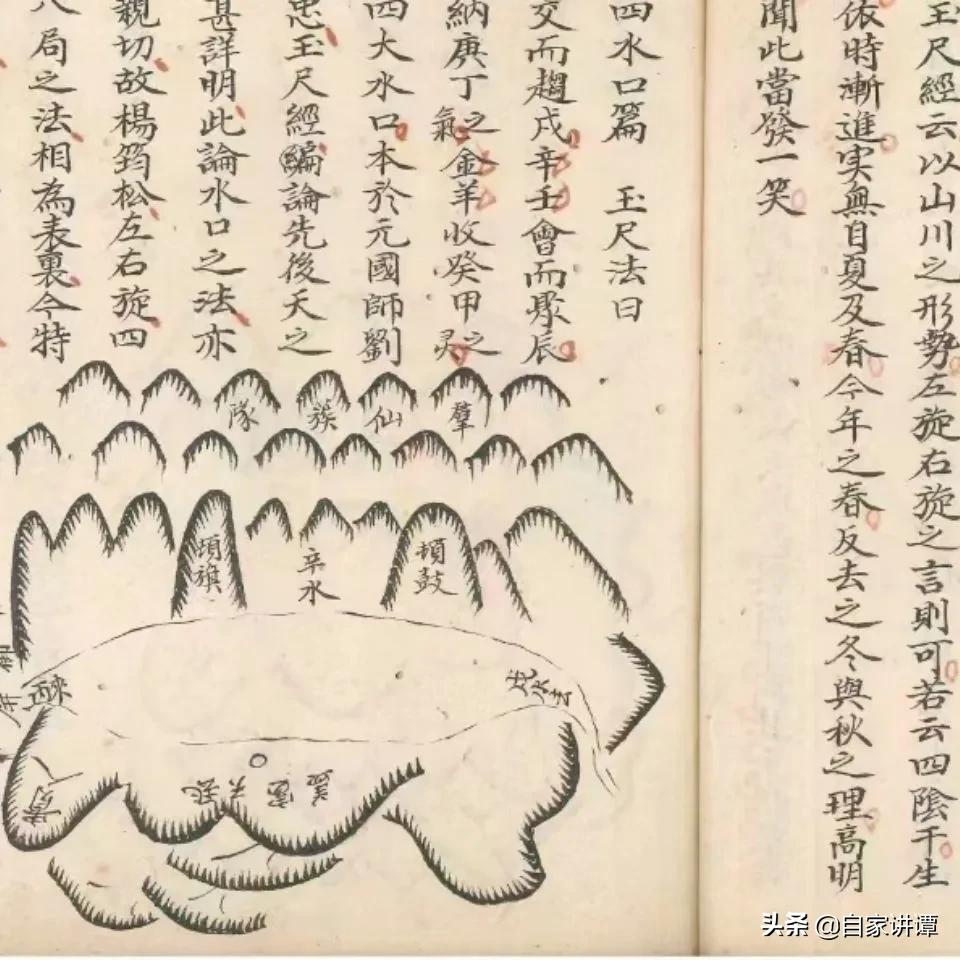 玉尺經云以山川之形勢左旋右旋之言則可若云四陰干生
依時漸進实無自夏及春今年之春反去之冬與秋之理高明
聞此當發一笑
四水口篇 玉尺法曰
交而趨戌辛壬會而聚辰
納庚丁之氣金羊收癸甲之灵
四大水口本於元國師劉
忠玉尺經編論先後天之
甚詳明此論水口之法亦
親切故楊筠松左右旋四
八局之法相為表裏今特
羣仙簇隊
頓鼓
辛水
頓旗
头条 @自家讲谭